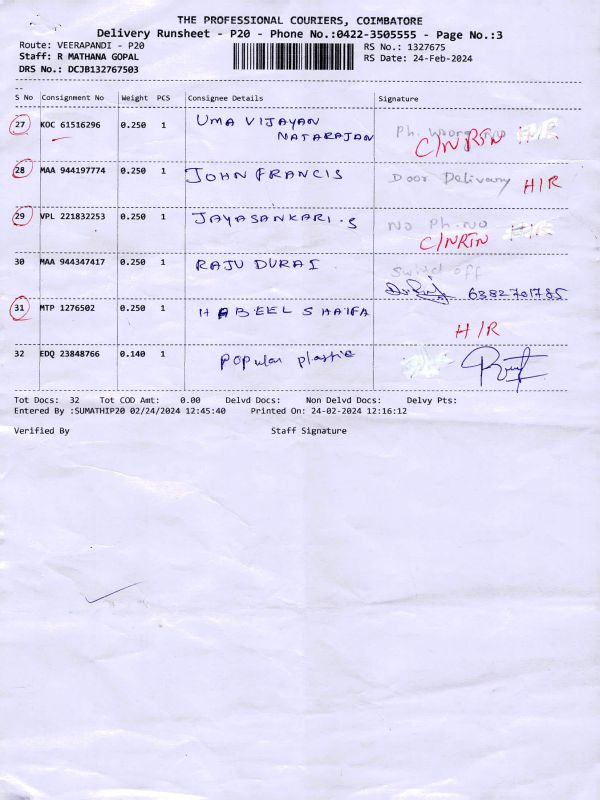 THE PROFESSIONAL COURIERS, COIMBATORE
Delivery Runsheet - P20 - Phone No.:0422-3505555 - Page No.:3
Route: VEERAPANDI - P20 RS No.: 1327675
Staff: R MATHANA GOPAL RS Date: 24-Feb-2024
DRS No.: DCJB132767503
S No Consignment No Weight PCS Consignee Details Signature
27 KOC 61516296 0.250 1 UMA VIJAYAN
NATARAJAN
Ph. wrong no
C/NRTN
28 MAA 944197774 0.250 1 JOHN FRANCIS Door Delivery H/R
29 VPL 221832253 0.250 1 JAYASANKARI.S No Ph.No
C/NRTN
30 MAA 944347417 0.250 1 RAJU DURAI off
6382701785
31 MTP 1276502 0.250 1 HABEEL SHAIFA
H/R
32 EDQ 23848766 0.140 1 Popular plastic
Tot Docs: 32 Tot COD Amt: 0.00 Delvd Docs: Non Delvd Docs: Delvy Pts:
Entered By :SUMATHIP20 02/24/2024 12:45:40 Printed On: 24-02-2024 12:16:12
Verified By Staff Signature